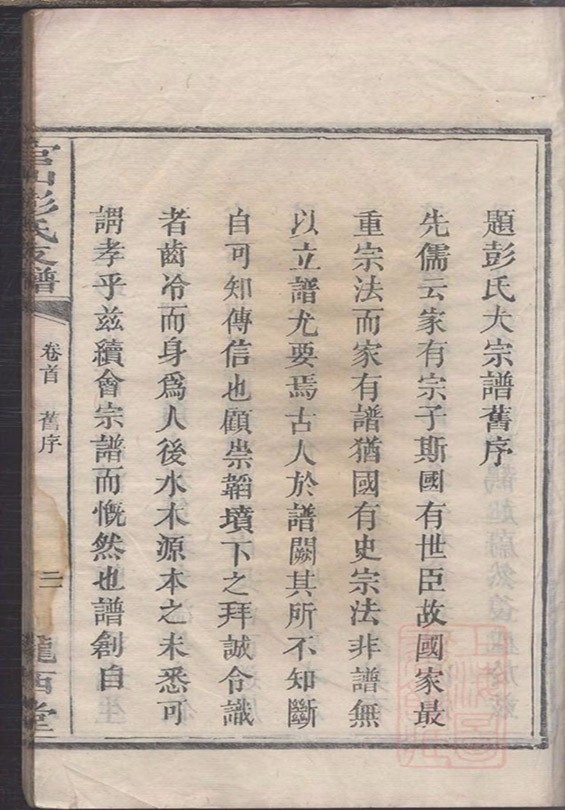 題彭氏大宗譜舊序
先儒云家有宗子斯國有世臣故國家最
重宗法而家有譜猶國有史宗法非譜無
以立譜尤要焉古人於譜闕其所不知斷
自可知傳信也顧崇韜墳下之拜誠令識
者齒冷而身爲人後水木源本之未悉可
謂孝乎兹續會宗譜而慨然也譜創自
官山彭氏支譜
卷首 舊序
二 隴西堂